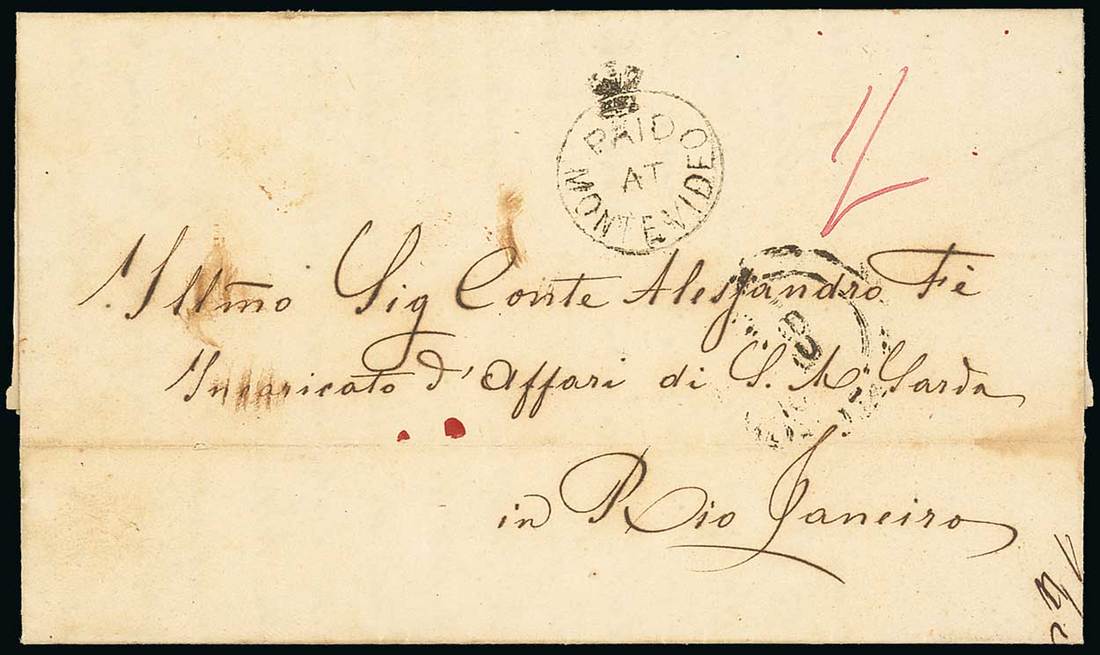 PAID
AT
MONTEVIDEO
1/
Illmo Sig Conte Alessandro Fè
Incaricato d'Affari di S. M. Sarda
in Rio Janeiro